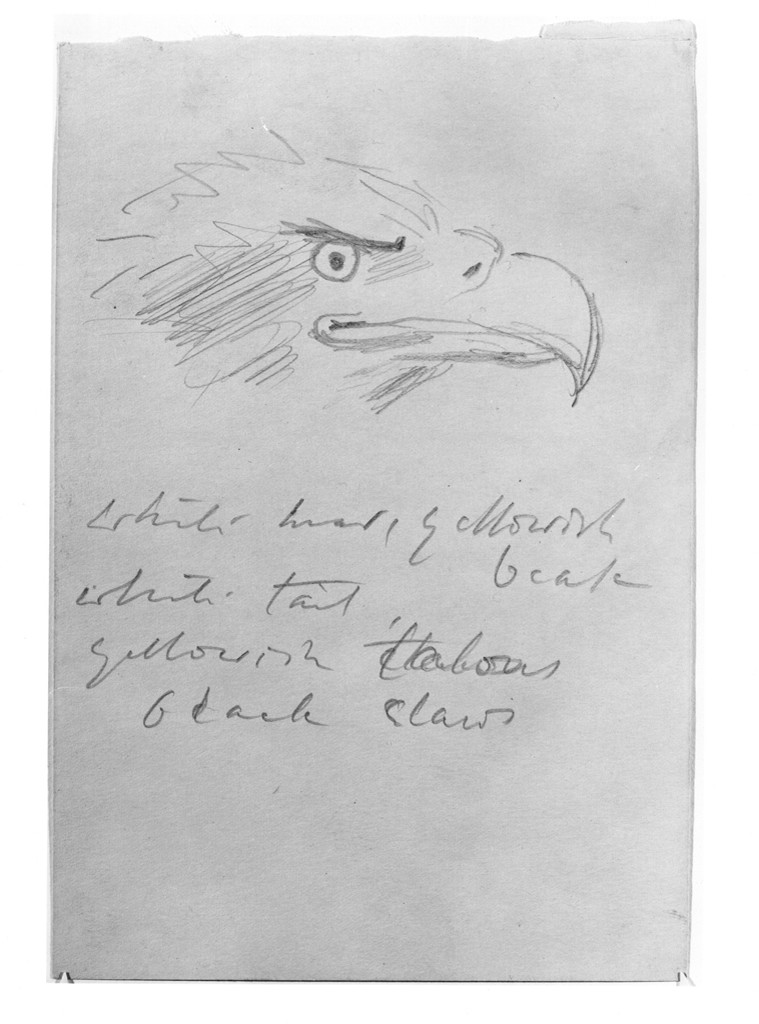 white head, yellowish
beak
white tail
yellowish talons
black claws